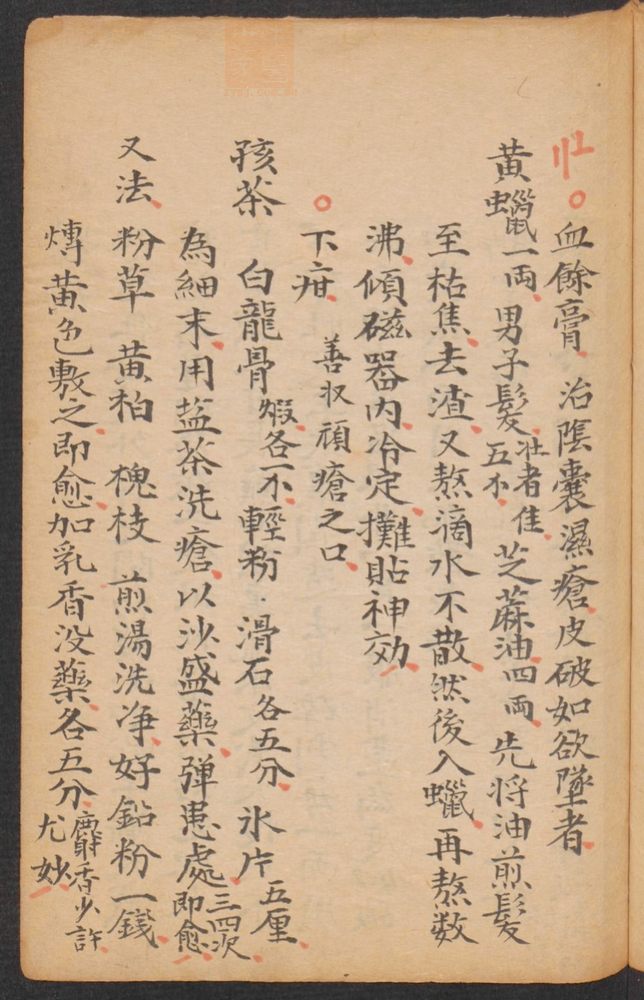 血餘膏 治陰囊濕瘡皮破如欲墜者
黄蠟一両 男子髮壯者佳五小 芝蔴油四両 先将油煎髮
至枯焦去渣又熬滴水不散然後入蠟再熬数
沸傾磁器内冷定攤貼神効
下疳 善收頑瘡之口
孩茶 白龍骨煅各一小 輕粉 滑石各五分 氷片五厘
為細末用盐茶洗瘡以沙盛藥弹患處三四次即愈
又法 粉草 黄柏 槐枝 煎湯洗净好鉛粉一錢
煿黄色敷之即愈加乳香没藥各五分麝香少許尤妙